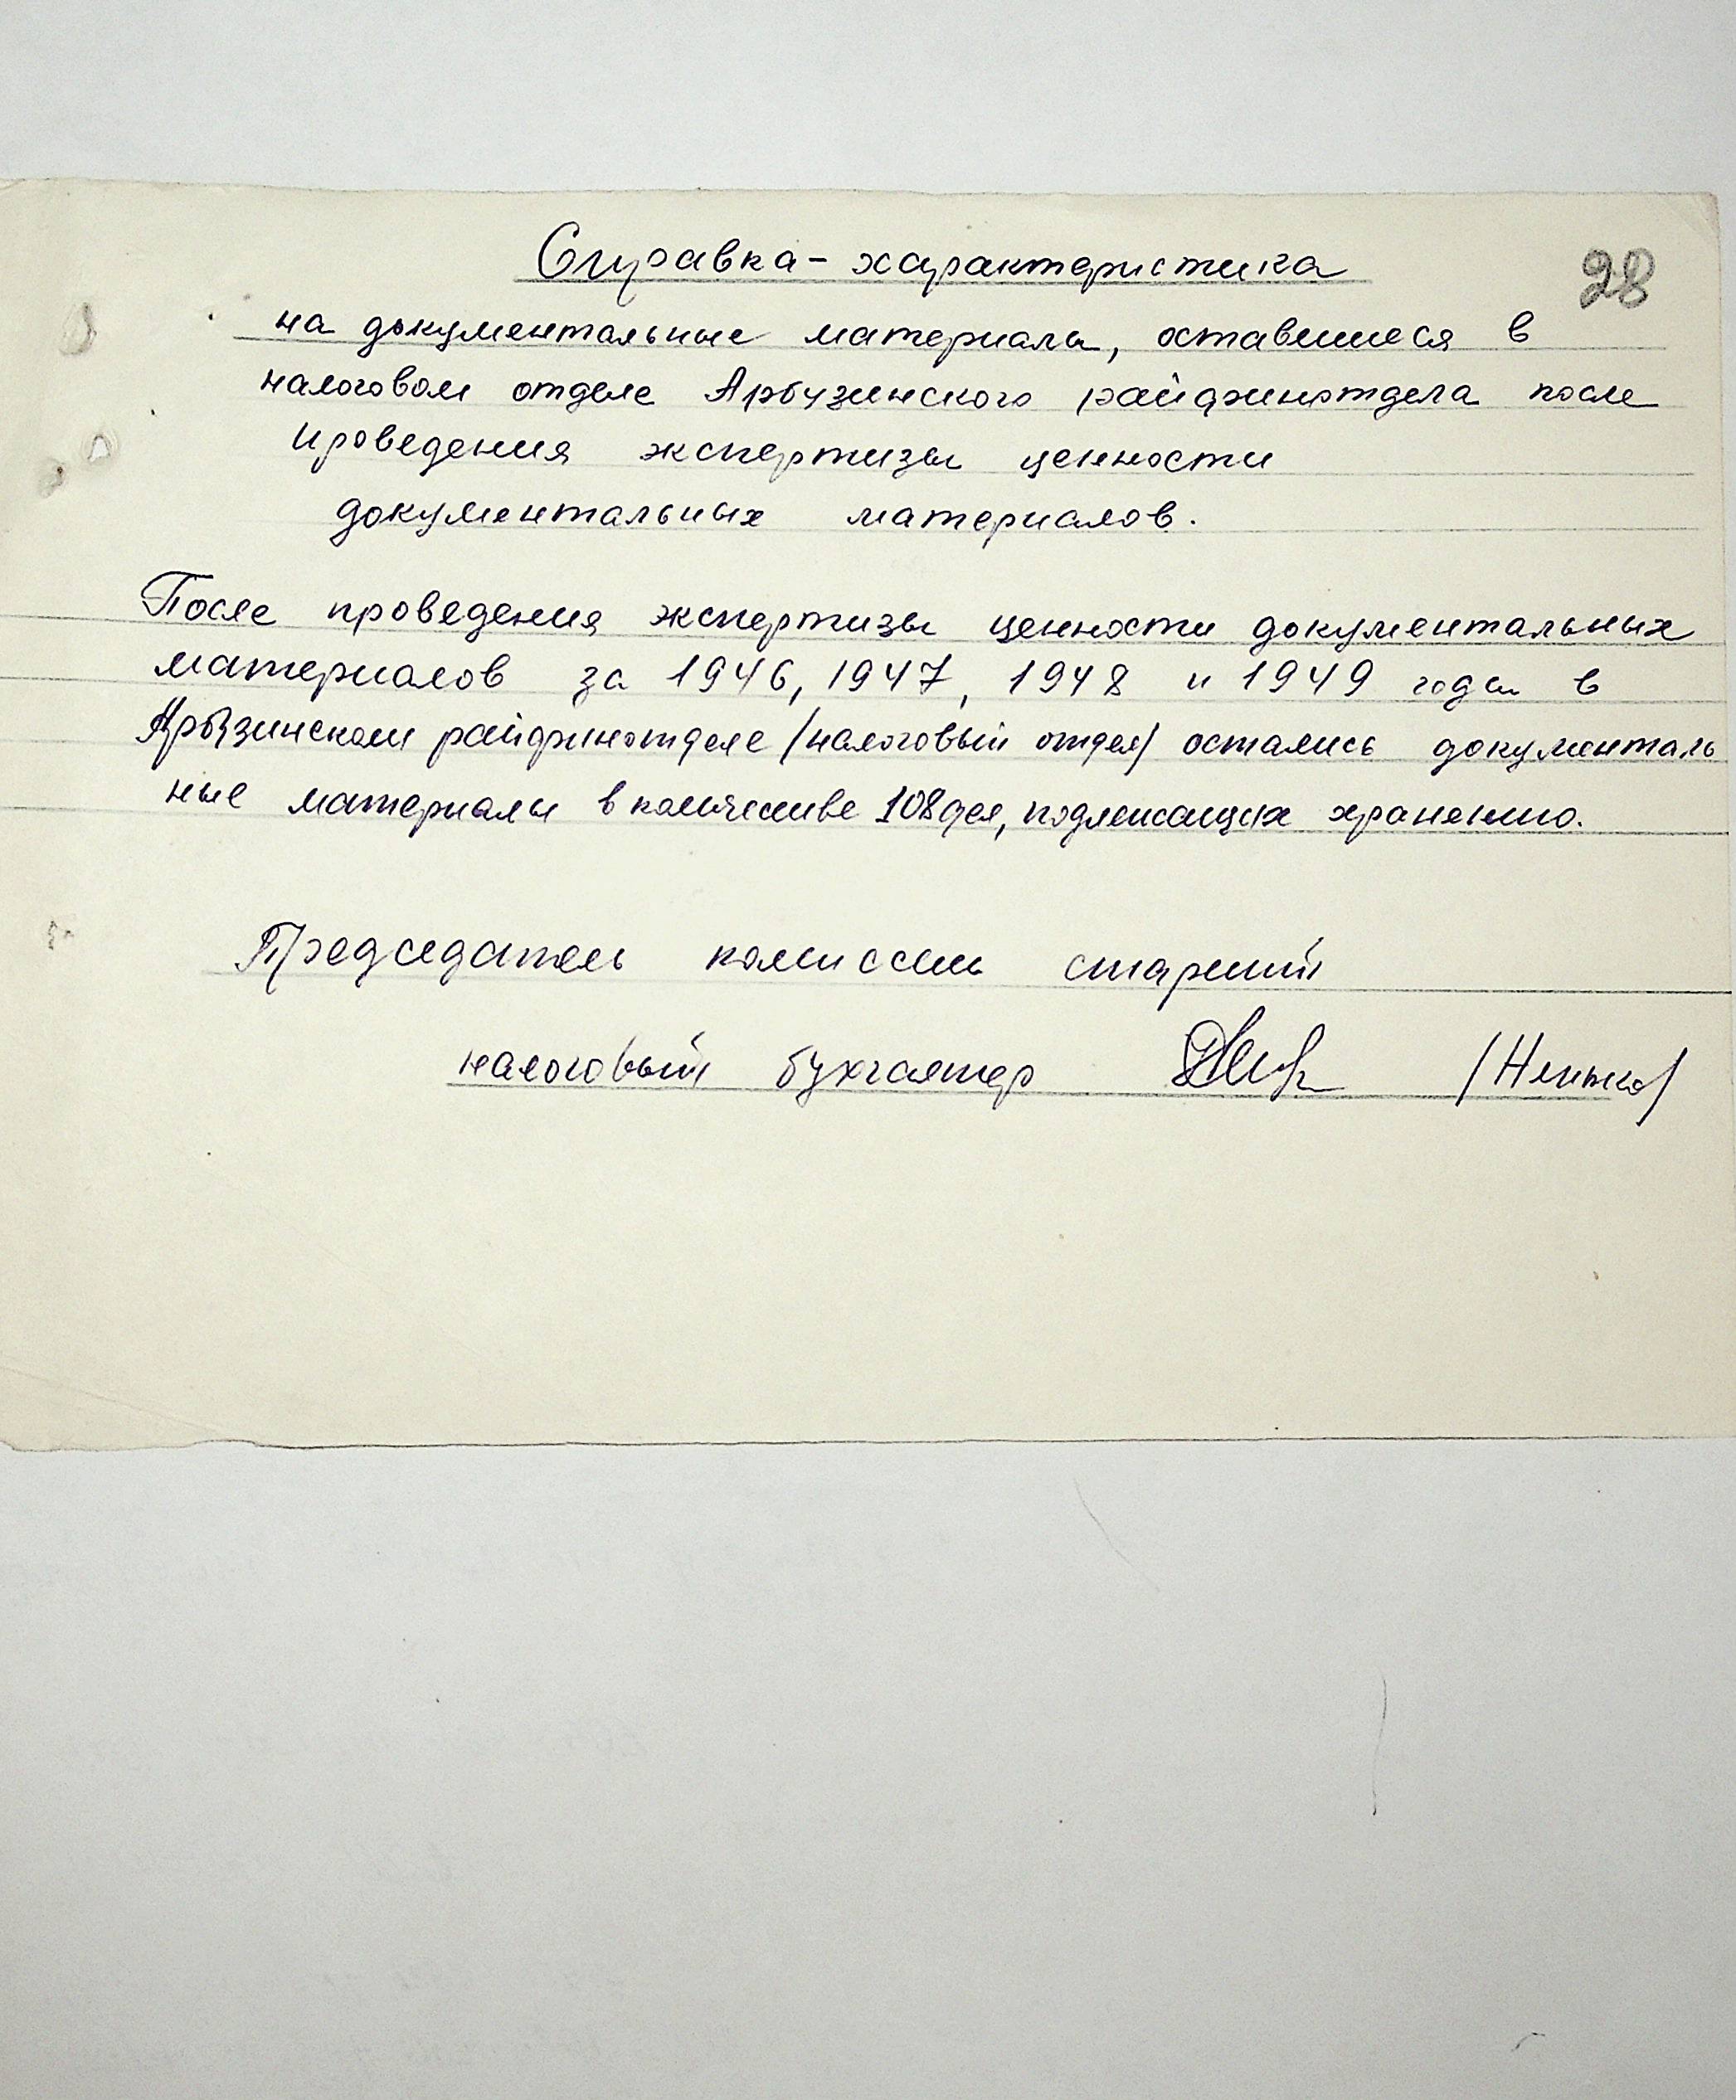 Справка - характеристика
28
на документальные материалы, оставшиеся в
налоговом отделе Арбузинского райфинотдела после
проведения экспертизы ценности
документальных материалов.
После проведения экспертизы ценности документальных
материалов за 1946, 1947, 1948 и 1949 годы в
Арбузинском райфинотделе /налоговый отдел/ остались документаль
ные материалы в количестве 108 дел, подлежащих хранению.
Председатель комиссии старший
налоговый бухгалтер